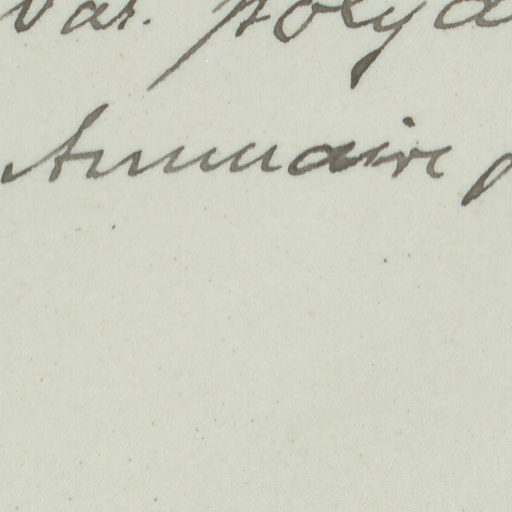 Var. polya
Annuaire p